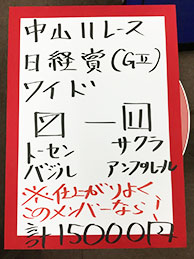 中山11レース
日経賞(GⅡ)
ワイド
7 — 11
トーセン サクラ
バジル アンプルール
※仕上がりよく
このメンバーなら!
計15000円